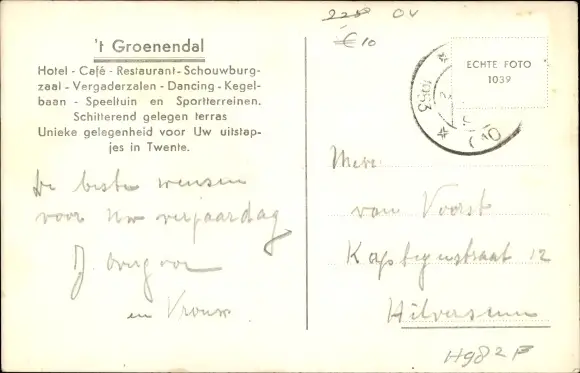 't Groenendal
Hotel - Café - Restaurant - Schouwburg-
zaal - Vergaderzalen - Dancing - Kegel-
baan - Speeltuin en Sportterreinen.
Schitterend gelegen terras
Unieke gelegenheid voor Uw uitstap-
jes in Twente.
De beste wensen
voor Uw verjaardag
J.
en Vrouw
228 OV
€ 10
ECHTE FOTO
1039
1953
(Ov)
Mevr.
van Voorst
straat 12
Hilversum
H982F